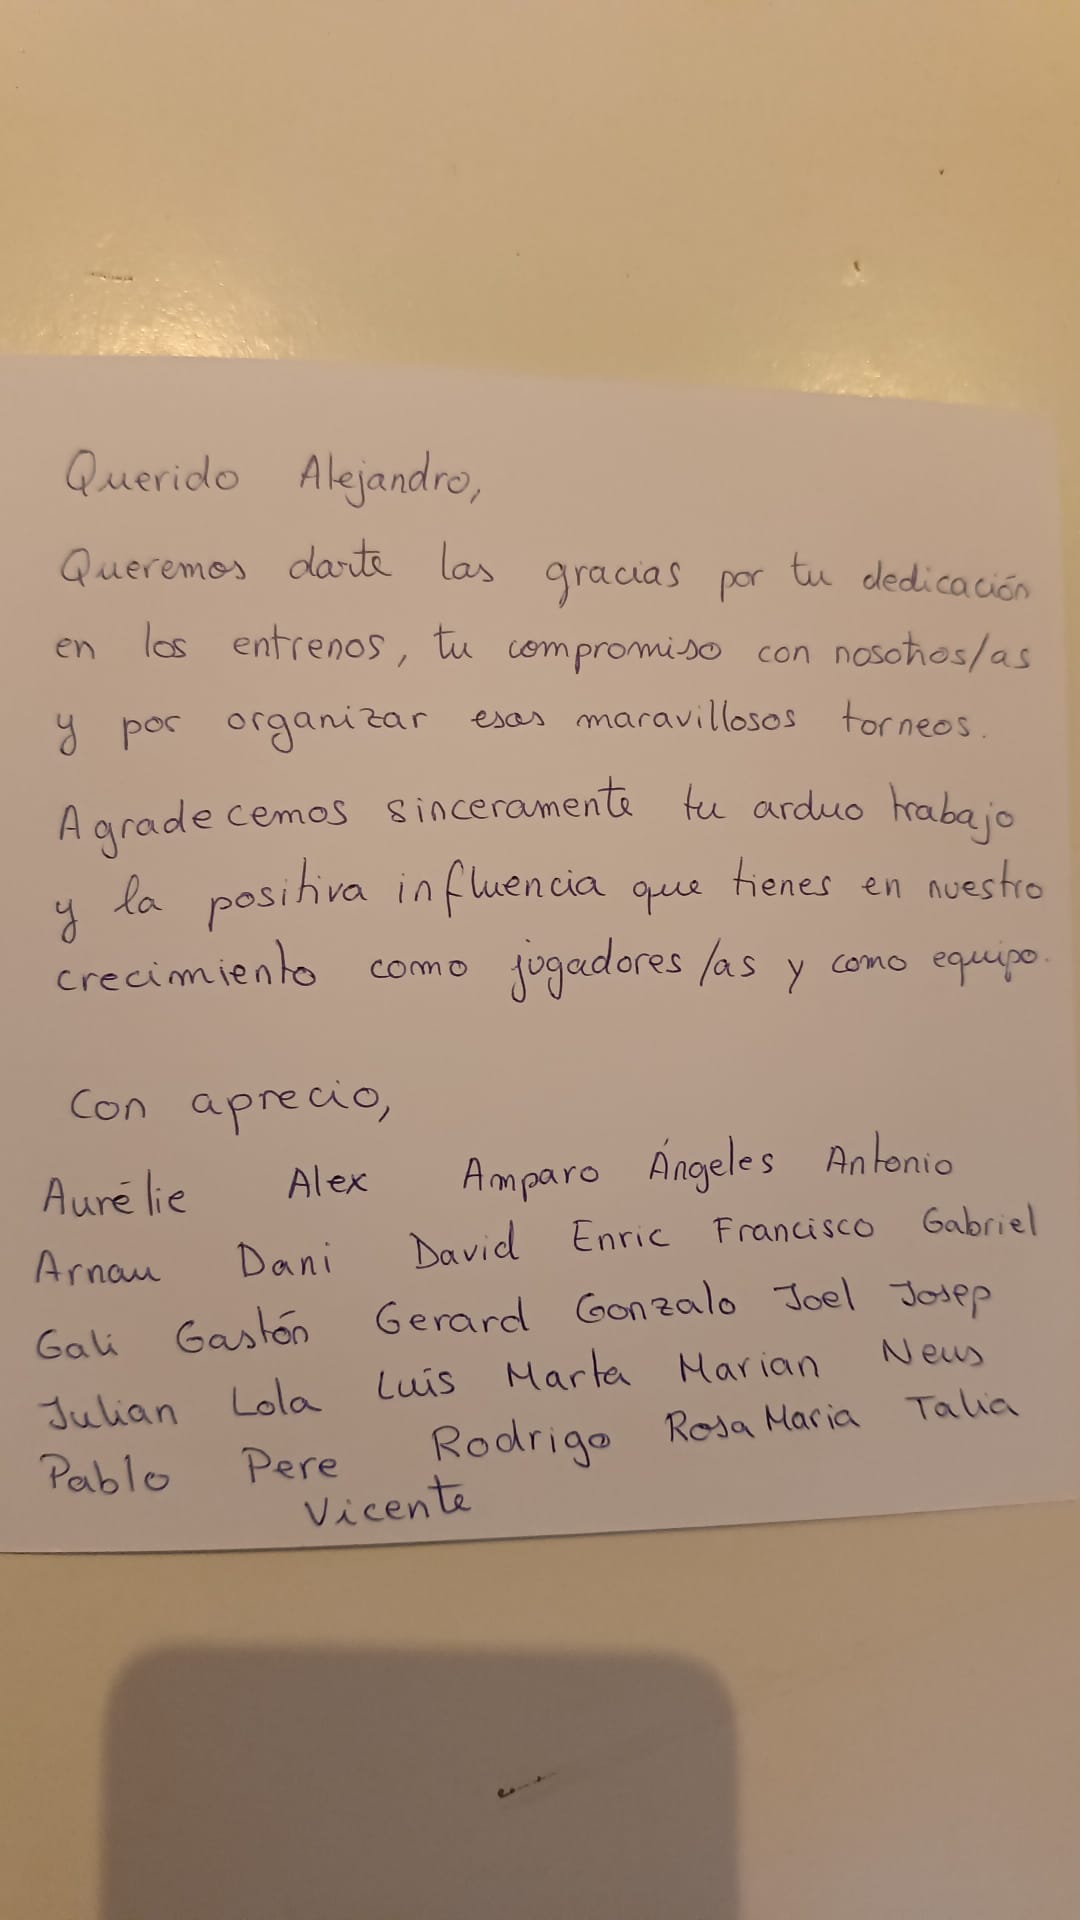 Querido Alejandro,
Queremos darte las gracias por tu dedicación
en los entrenos, tu compromiso con nosotros/as
y por organizar esos maravillosos torneos.
Agradecemos sinceramente tu arduo trabajo
y la positiva influencia que tienes en nuestro
crecimiento como jugadores/as y como equipo.
Con aprecio,
Aurélie Alex Amparo Ángeles Antonio
Arnau Dani David Enric Francisco Gabriel
Gali Gastón Gerard Gonzalo Joel Josep
Julian Lola Luis Marta Marian Neus
Pablo Pere Rodrigo Rosa Maria Talia
Vicente